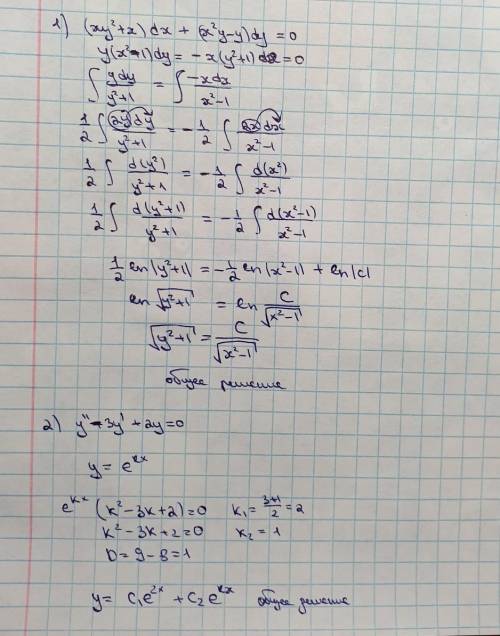 1) (xy²+x)dx + (x²y-y)dy = 0
y(x²-1)dy = -x(y²+1)dx = 0
∫ ydy/(y²+1) = ∫ -xdx/(x²-1)
1/2 ∫ 2ydy/(y²+1) = -1/2 ∫ 2xdx/(x²-1)
1/2 ∫ d(y²)/(y²+1) = -1/2 ∫ d(x²)/(x²-1)
1/2 ∫ d(y²+1)/(y²+1) = -1/2 ∫ d(x²-1)/(x²-1)
1/2 ln|y²+1| = -1/2 ln|x²-1| + ln|c|
ln √(y²+1) = ln C/√(x²-1)
√(y²+1) = C/√(x²-1)
общее решение
2) y''-3y' + 2y = 0
y = e^(kx)
e^(kx) (k²-3k+2) = 0 k₁ = (3+1)/2 = 2
k²-3k+2 = 0 k₂ = 1
D = 9-8 = 1
y = C₁e^(2x) + C₂e^(kx) общее решение